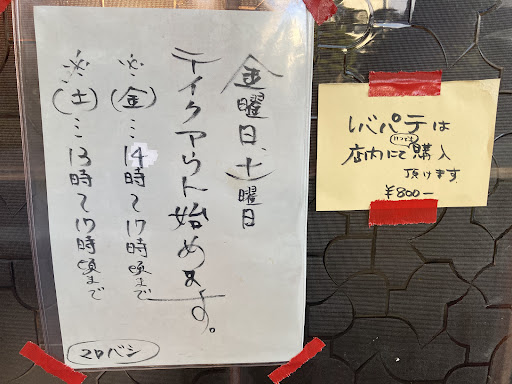 金曜日、土曜日
テイクアウト始めます。
※(金)…14時〜17時頃まで
※(土)…13時〜17時頃まで
マロバシ
レバパテは
いつでも
店内にて購入
頂けます
¥800-